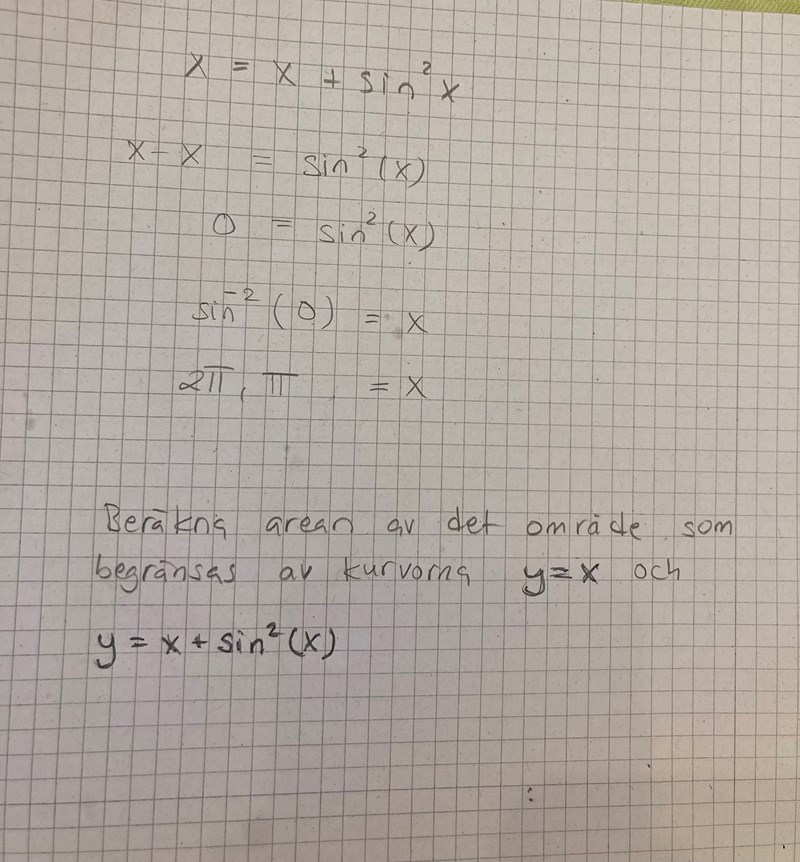 x = x + sin²x
x - x = sin²(x)
0 = sin²(x)
sin⁻²(0) = x
2π, π = x
Beräkna arean av det område som
begränsas av kurvorna y=x och
y = x + sin²(x)